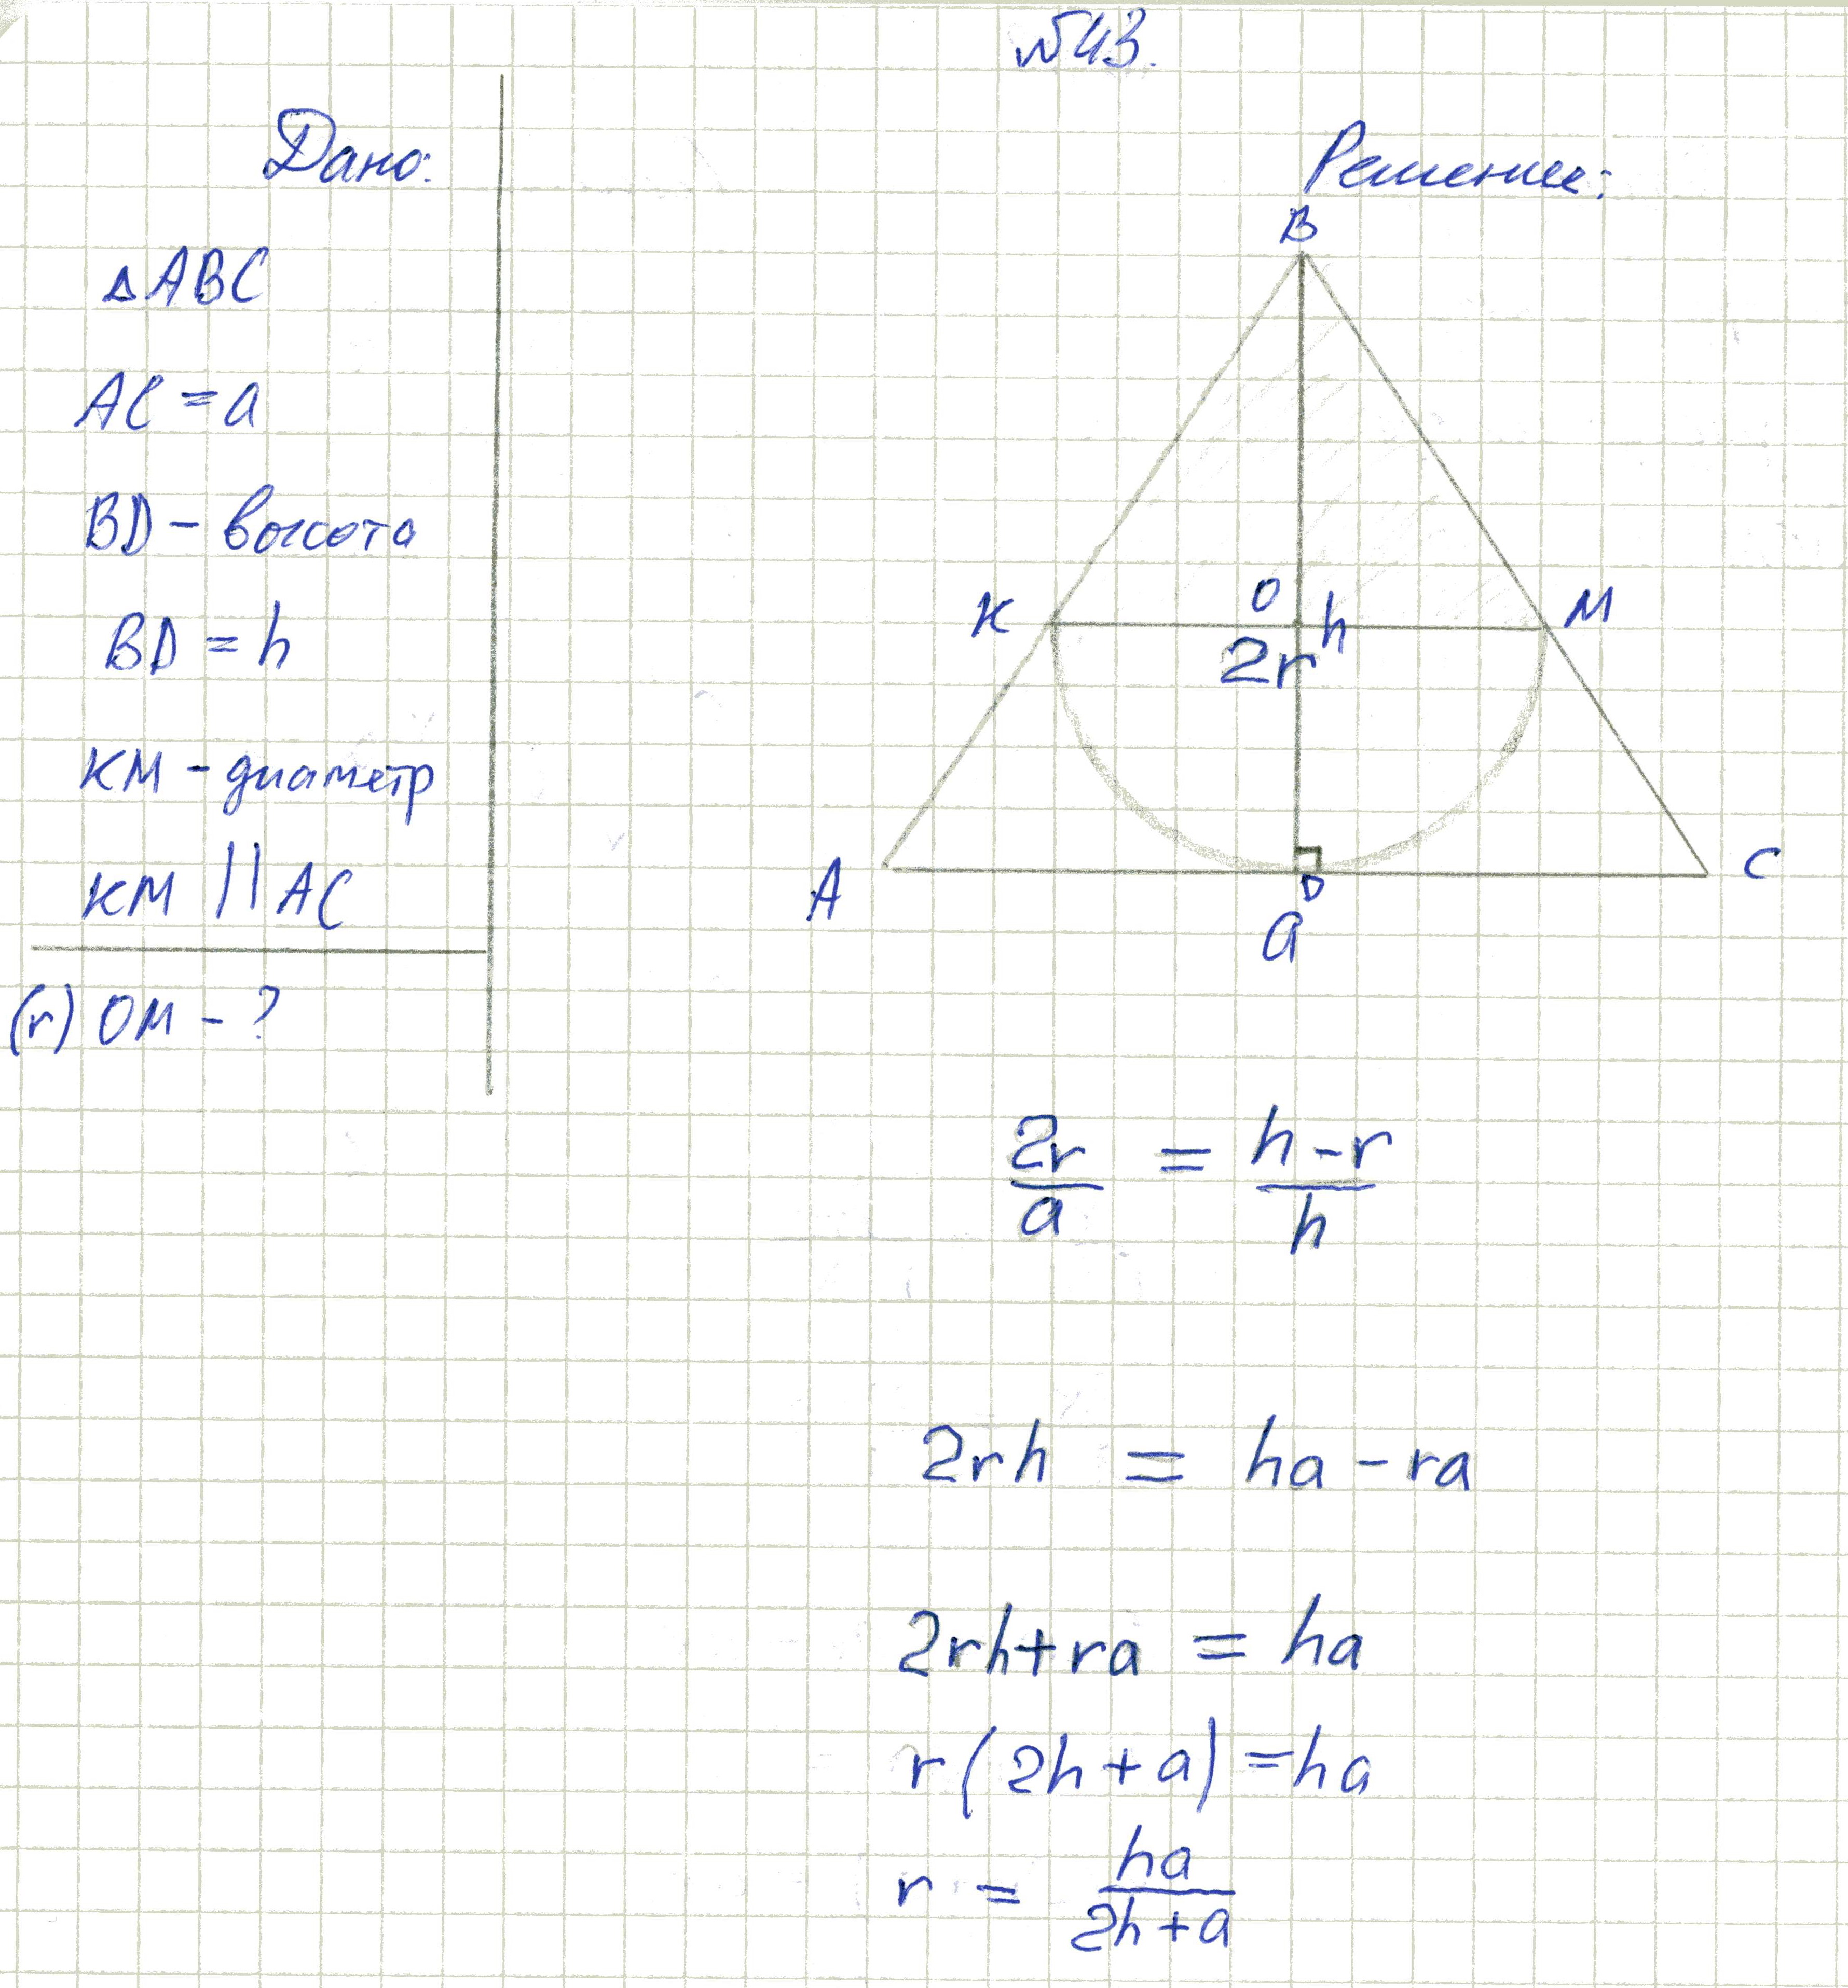 №43.
Дано:
△ABC
AC = a
BD - высота
BD = h
KM - диаметр
KM || AC
(r) OM - ?
Решение:
B
K O M
2r h
A D C
a
2r/a = (h-r)/h
2rh = ha - ra
2rh + ra = ha
r(2h + a) = ha
r = ha/(2h+a)